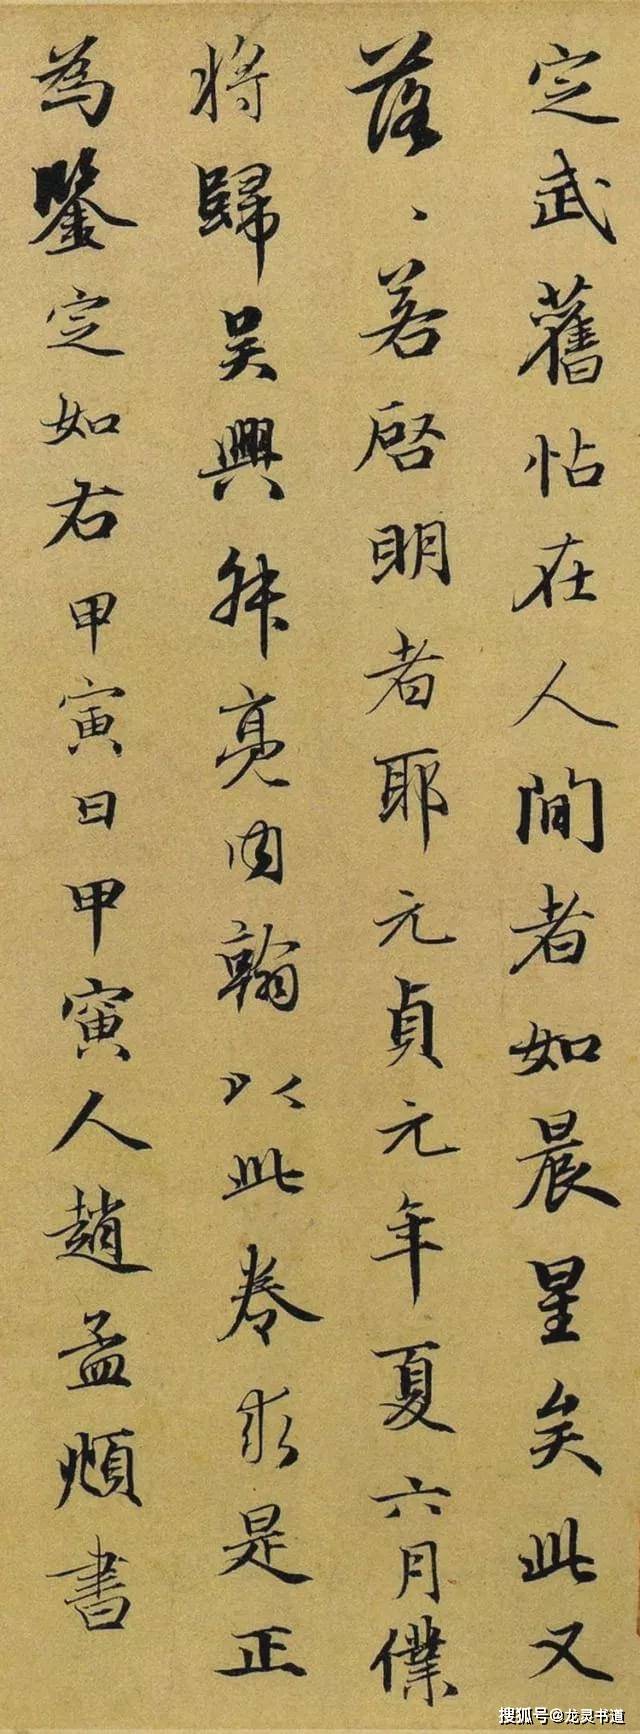 定武舊帖在人間者如晨星矣此又
落、若啓明者耶元貞元年夏六月僕
將歸吴興叔亮内翰以此卷求是正
為鑒定如右甲寅日甲寅人趙孟頫書
搜狐号@龙灵书道